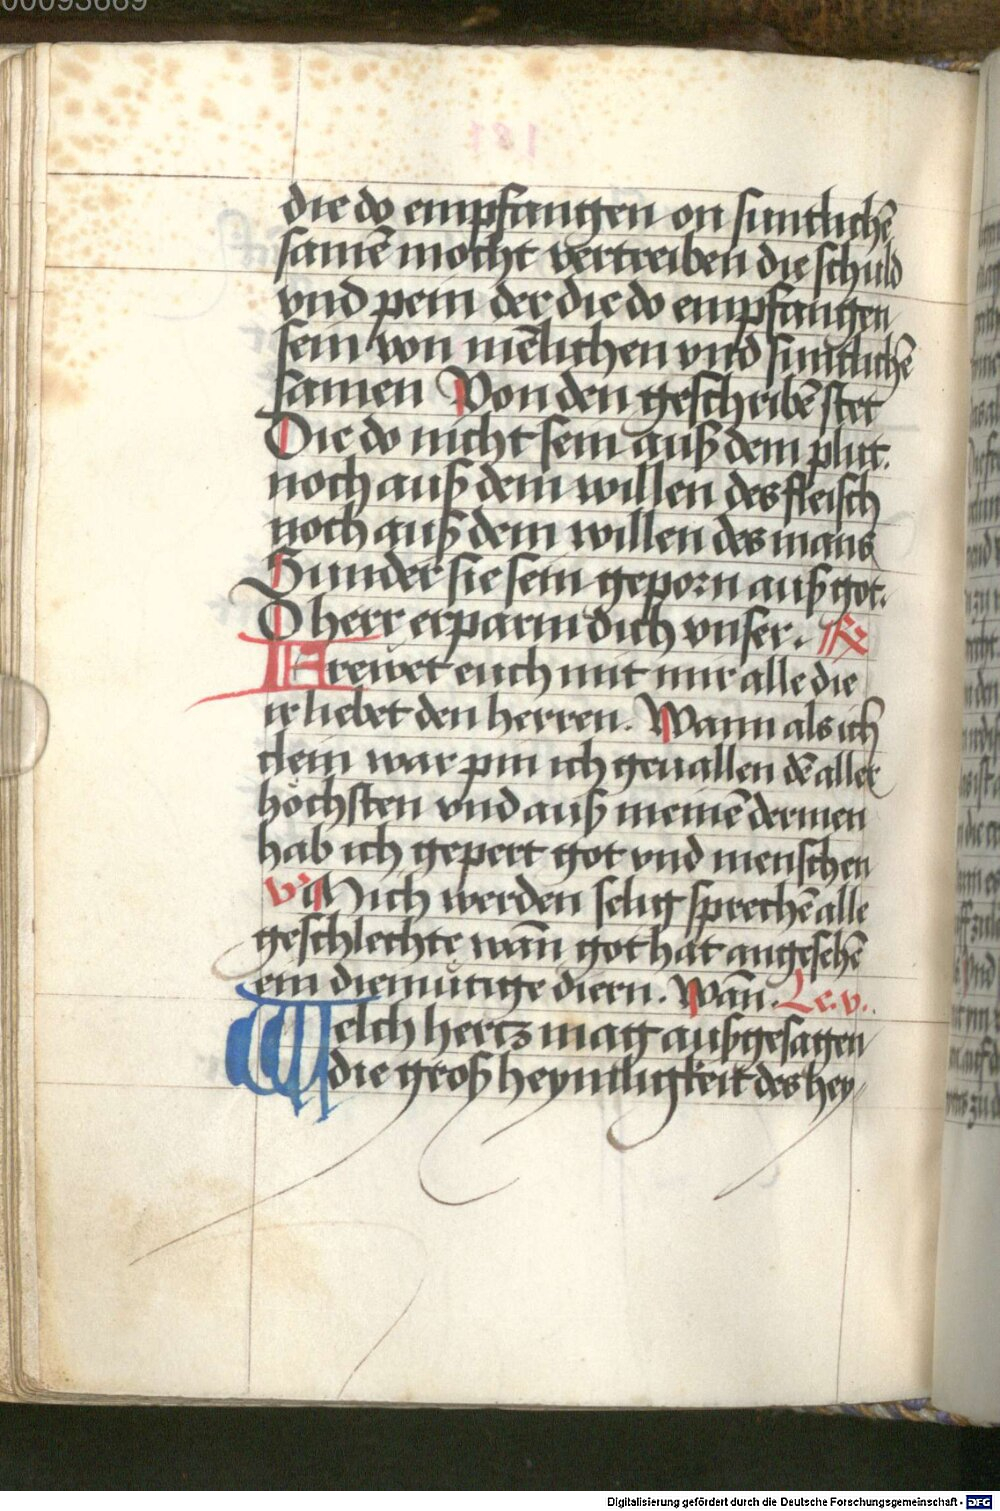 00093669
die do empfangen on suntlichē
samē mocht vertreiben die schuld
vnd pein der die do empfangen
sein von mēlichen vnd suntlichē
samen Von den geschribē stet
Die do nicht sein auß dem plut.
noch auß dem willen des fleisch
noch auß dem willen des mans
Sunder sie sein geporn auß got.
O herr erparm dich vnser. ℟
Frewet euch mit mir alle die
ir liebet den herren. Wann als ich
clein war pin ich geuallen dē aller
höchsten vnd auß meinē dermen
hab ich gepert got vnd menschen
v Mich werden selig sprechē alle
geschlechte wañ got hat angesehē
ein diemütige diern. Wañ. Le. v.
Welch hertz mag auß gesagen
die groß heymligkeit des hey//
Digitalisierung gefördert durch die Deutsche Forschungsgemeinschaft - DFG